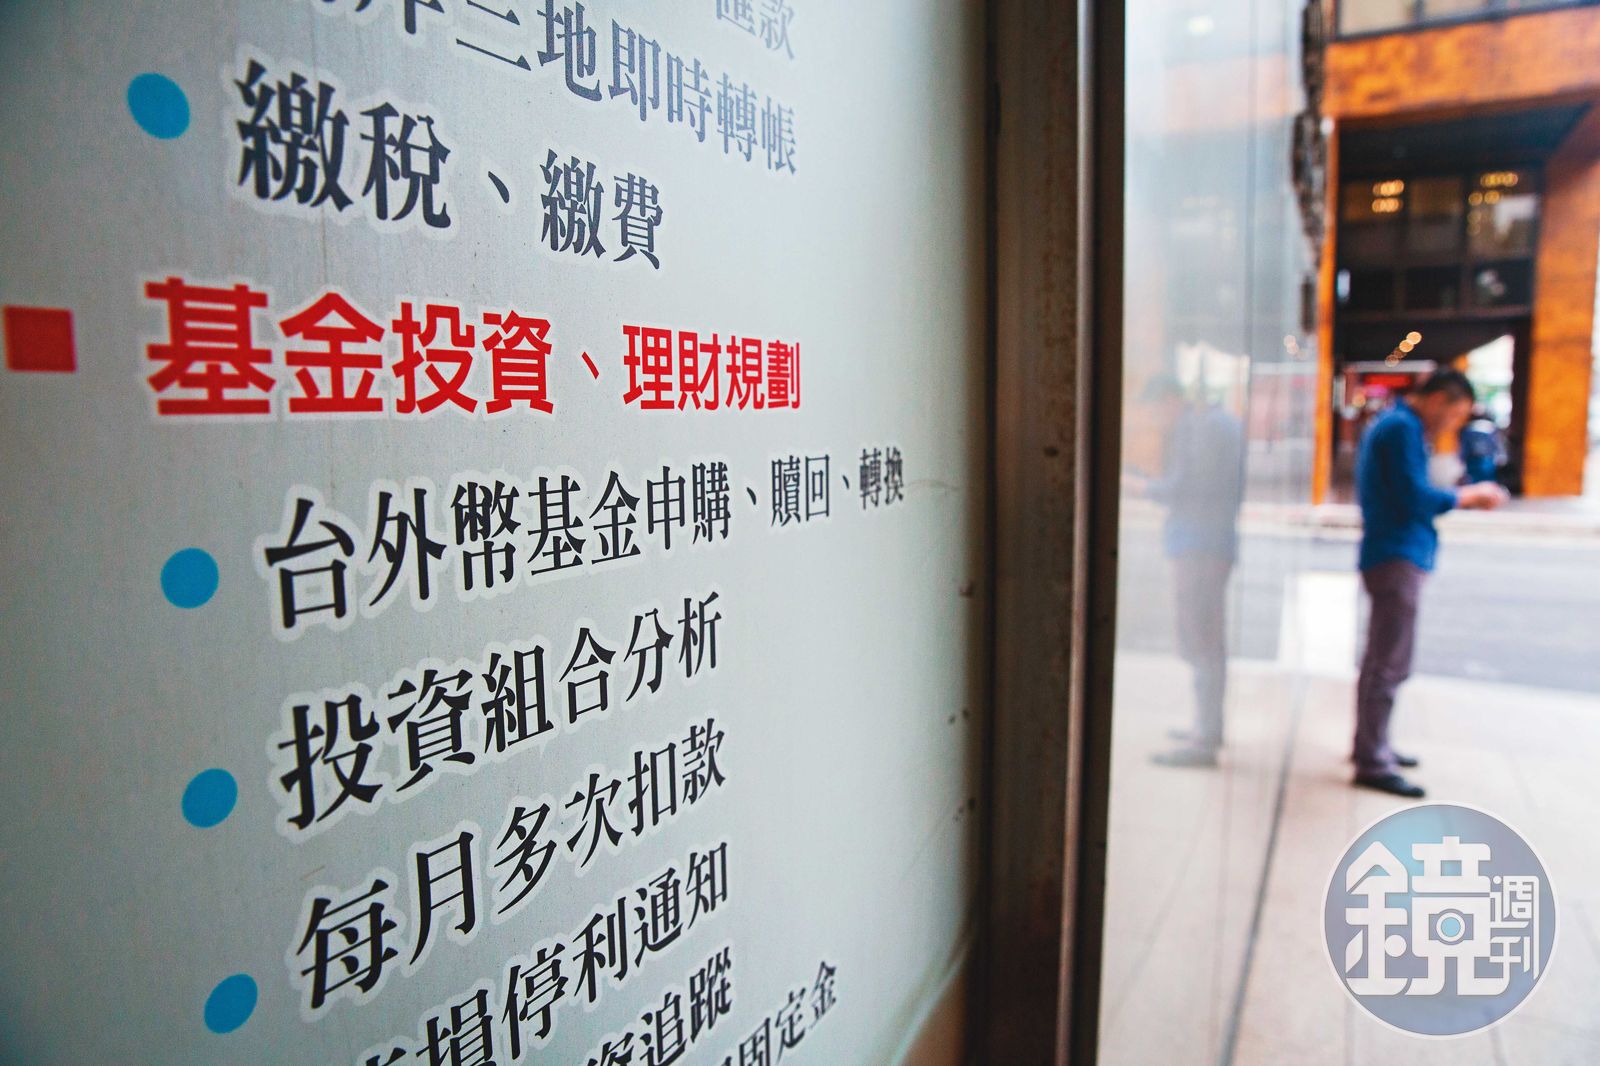 匯款
三地即時轉帳
繳稅、繳費
基金投資、理財規劃
台外幣基金申購、贖回、轉換
投資組合分析
每月多次扣款
損停利通知
資追蹤
固定金
鏡週刊